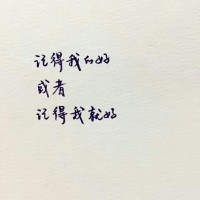 记得我的好
或者
记得我就好